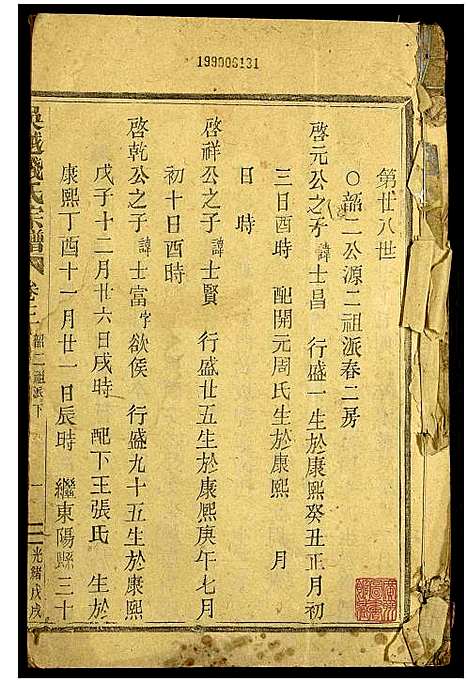 199006131
第廿八世
〇韶二公源二祖派春二房
啓元公之子諱士昌 行盛一生於康熙癸丑正月初
三日酉時 配開元周氏生於康熙 月
日 時
啓祥公之子諱士賢 行盛廿五生於康熙庚午七月
初十日酉時
啓乾公之子諱士富字欲侯 行盛九十五生於康熙
戊子十二月廿六日戌時 配下王張氏 生於
康熙丁酉十一月廿一日辰時 繼東陽縣三十
吳越錢氏宗譜 卷三 韶二祖派下 一 光緒戊戌